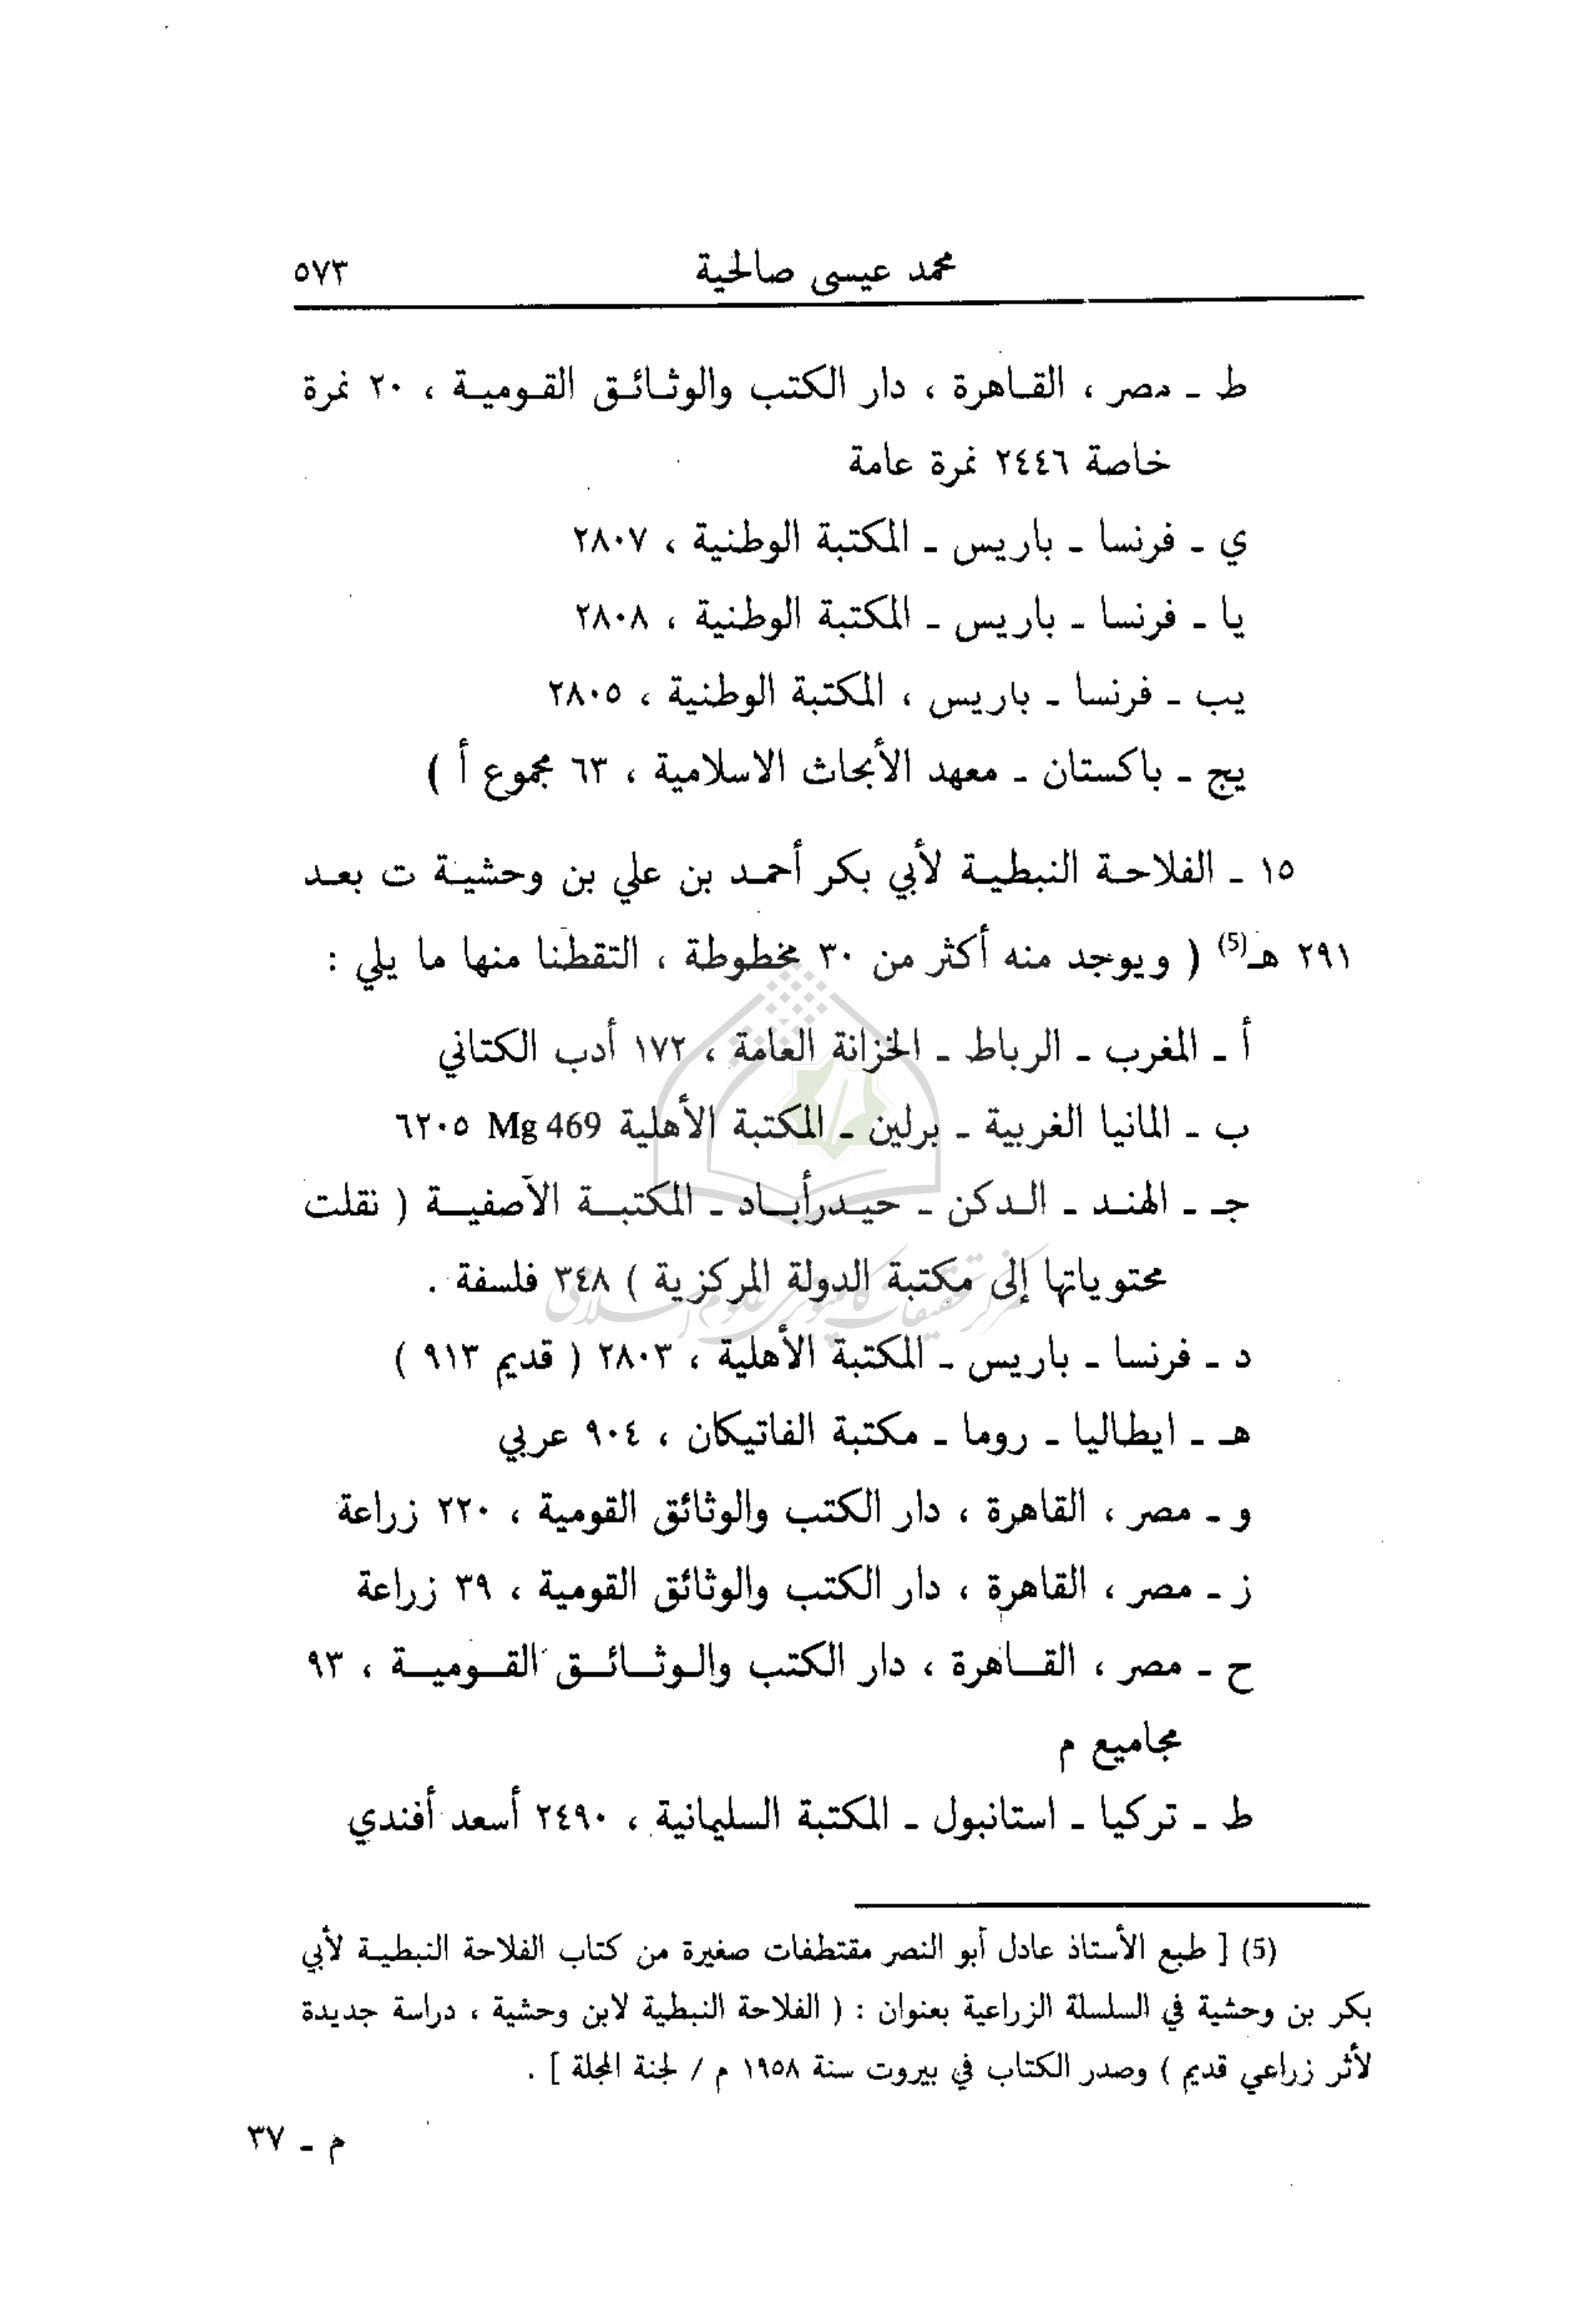 محمد عيسى صالحية ٥٧٣
ط ـ مصر ، القاهرة ، دار الكتب والوثائق القومية ، ٢٠ نمرة
خاصة ٢٤٤٦ نمرة عامة
ي ـ فرنسا ـ باريس ـ المكتبة الوطنية ، ٢٨٠٧
يا ـ فرنسا ـ باريس ـ المكتبة الوطنية ، ٢٨٠٨
يب ـ فرنسا ـ باريس ، المكتبة الوطنية ، ٢٨٠٥
يج ـ باكستان ـ معهد الأبحاث الاسلامية ، ٦٣ مجموع أ )
١٥ ـ الفلاحة النبطية لأبي بكر أحمد بن علي بن وحشية ت بعد
٢٩١ هـ(5) ( ويوجد منه أكثر من ٣٠ مخطوطة ، التقطنا منها ما يلي :
أ ـ المغرب ـ الرباط ـ الخزانة العامة ، ١٧٢ أدب الكتاني
ب ـ المانيا الغربية ـ برلين ـ المكتبة الأهلية Mg 469 ٦٢٠٥
جـ ـ الهند ـ الدكن ـ حيدرأباد ـ المكتبة الآصفية ( نقلت
محتوياتها إلى مكتبة الدولة المركزية ) ٣٤٨ فلسفة .
مركز تحقيقات كامپيوترى علوم اسلامى
د ـ فرنسا ـ باريس ـ المكتبة الأهلية ، ٢٨٠٣ ( قديم ٩١٣ )
هـ ـ ايطاليا ـ روما ـ مكتبة الفاتيكان ، ٩٠٤ عربي
و ـ مصر ، القاهرة ، دار الكتب والوثائق القومية ، ٢٢٠ زراعة
ز ـ مصر ، القاهرة ، دار الكتب والوثائق القومية ، ٣٩ زراعة
ح ـ مصر ، القاهرة ، دار الكتب والوثائق القومية ، ٩٣
مجاميع م
ط ـ تركيا ـ استانبول ـ المكتبة السليمانية ، ٢٤٩٠ أسعد أفندي
(5) [ طبع الأستاذ عادل أبو النصر مقتطفات صغيرة من كتاب الفلاحة النبطية لأبي
بكر بن وحشية في السلسلة الزراعية بعنوان : ( الفلاحة النبطية لابن وحشية ، دراسة جديدة
لأثر زراعي قديم ) وصدر الكتاب في بيروت سنة ١٩٥٨ م / لجنة المجلة ] .
م ـ ٣٧